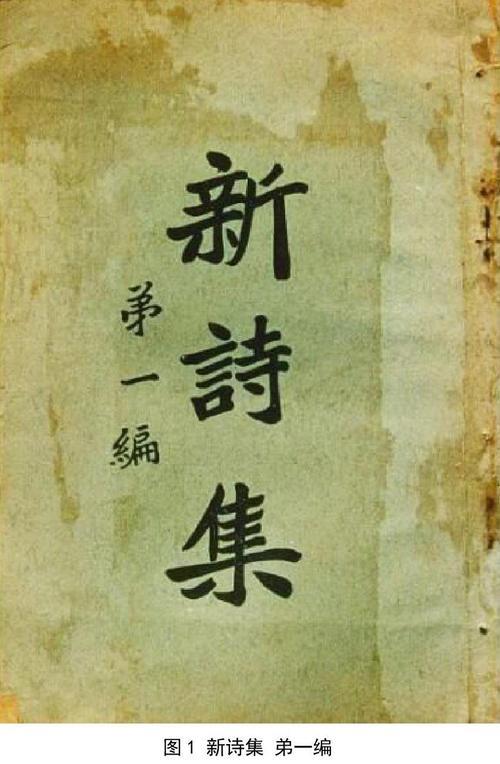 新詩集
弟一編
图1 新诗集 弟一编